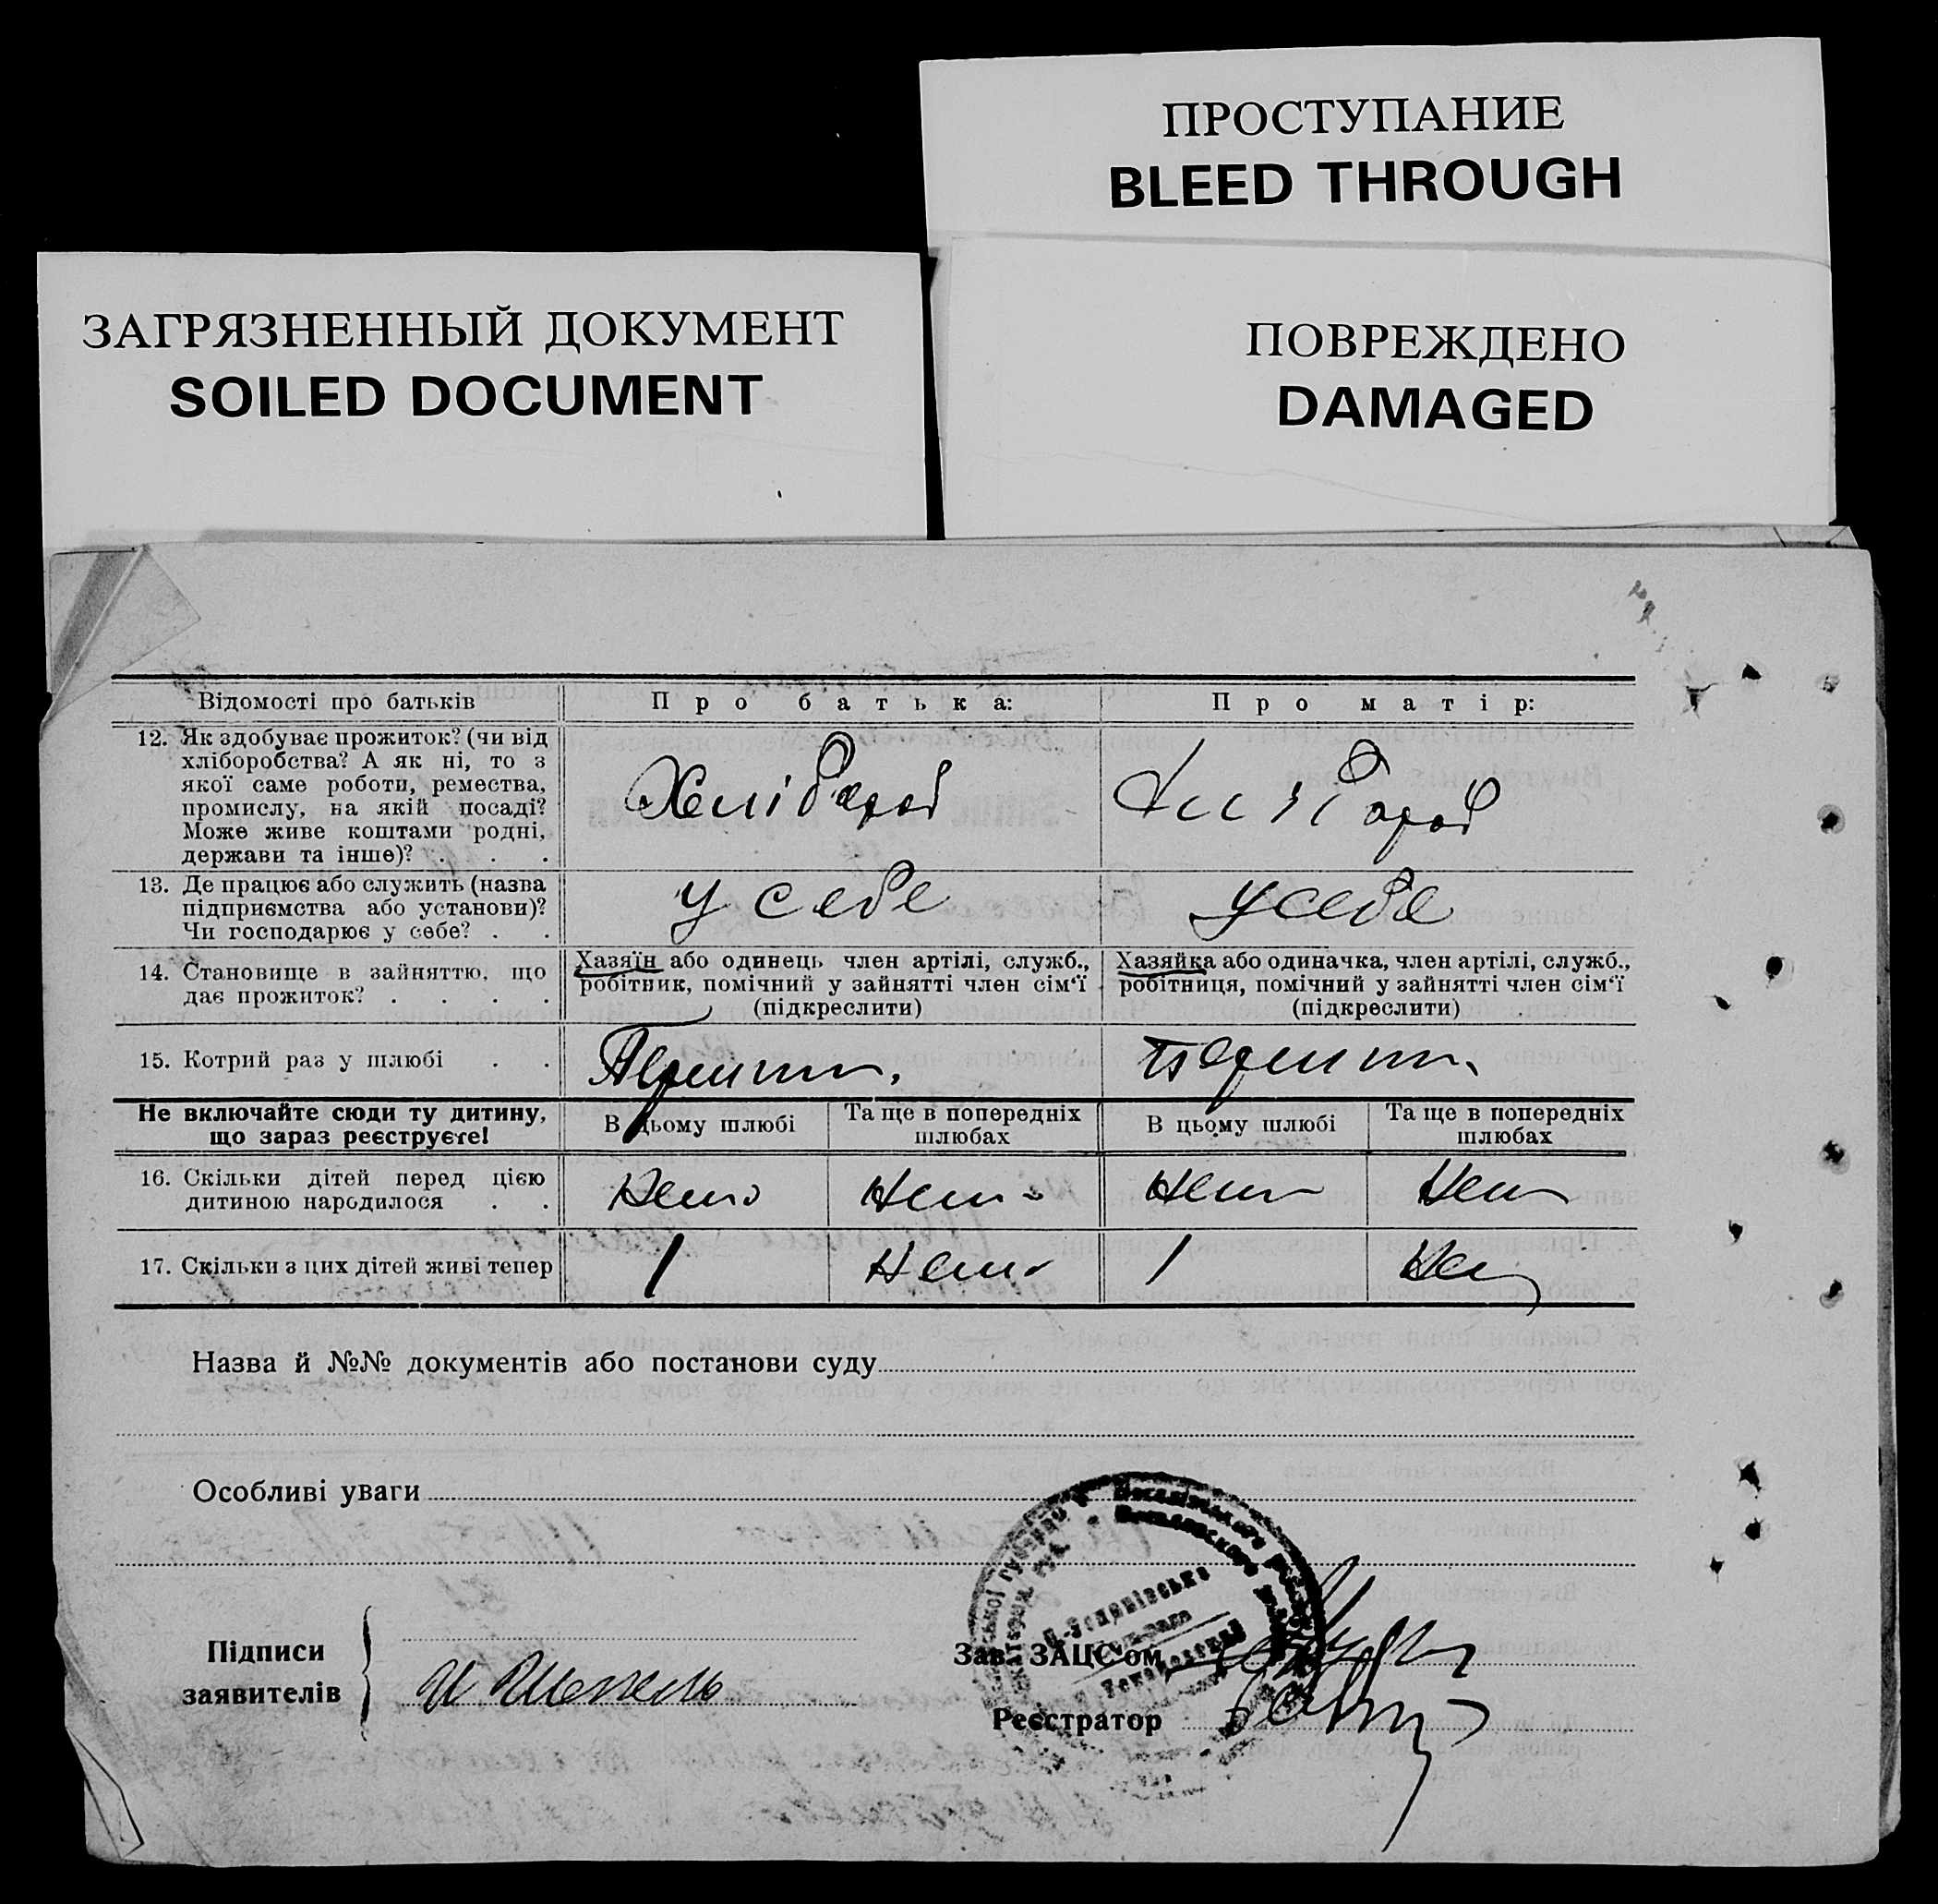 ПРОСТУПАНИЕ
BLEED THROUGH
ЗАГРЯЗНЕННЫЙ ДОКУМЕНТ
SOILED DOCUMENT
ПОВРЕЖДЕНО
DAMAGED
Відомості про батьків Про батька: Про матір:
12. Як здобуває прожиток? (чи від
хліборобства? А як ні, то з
якої саме роботи, ремества,
промислу, на якій посаді?
Може живе коштами родні,
держави та інше)? . . .
Хлібороб
13. Де працює або служить (назва
підприємства або установи)?
Чи господарює у себе? . .
У себе У себе
14. Становище в зайняттю, що
дає прожиток? . . . .
Хазяїн або одинець член артілі, служб.,
робітник, помічний у зайнятті член сім'ї
(підкреслити)
Хазяйка або одиначка, член артілі, служб.,
робітниця, помічний у зайнятті член сім'ї
(підкреслити)
15. Котрий раз у шлюбі . .
Не включайте сюди ту дитину,
що зараз реєструєте!
В цьому шлюбі
Та ще в попередніх
шлюбах
В цьому шлюбі
Та ще в попередніх
шлюбах
16. Скільки дітей перед цією
дитиною народилося . .
17. Скільки з цих дітей живі тепер 1 1
Назва й №№ документів або постанови суду
Особливі уваги
Підписи
заявителів
Зав. ЗАЦС'ом
Реєстратор